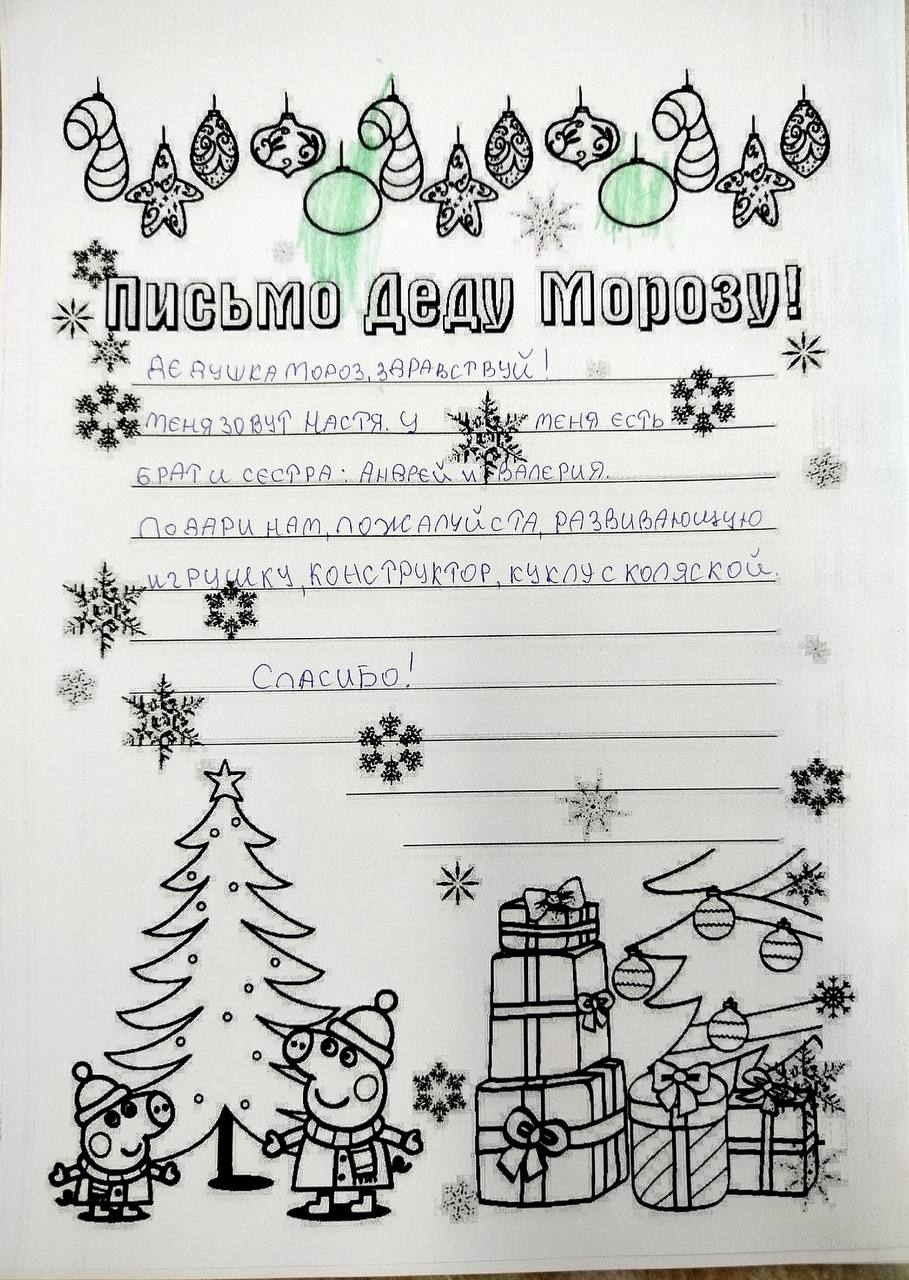 Письмо Деду Морозу!
ДЕДУШКА МОРОЗ, ЗДРАВСТВУЙ!
МЕНЯ ЗОВУТ НАСТЯ. У МЕНЯ ЕСТЬ
БРАТ И СЕСТРА: АНДРЕЙ И ВАЛЕРИЯ.
ПОДАРИ НАМ, ПОЖАЛУЙСТА, РАЗВИВАЮЩУЮ
ИГРУШКУ, КОНСТРУКТОР, КУКЛУ С КОЛЯСКОЙ.
СПАСИБО!